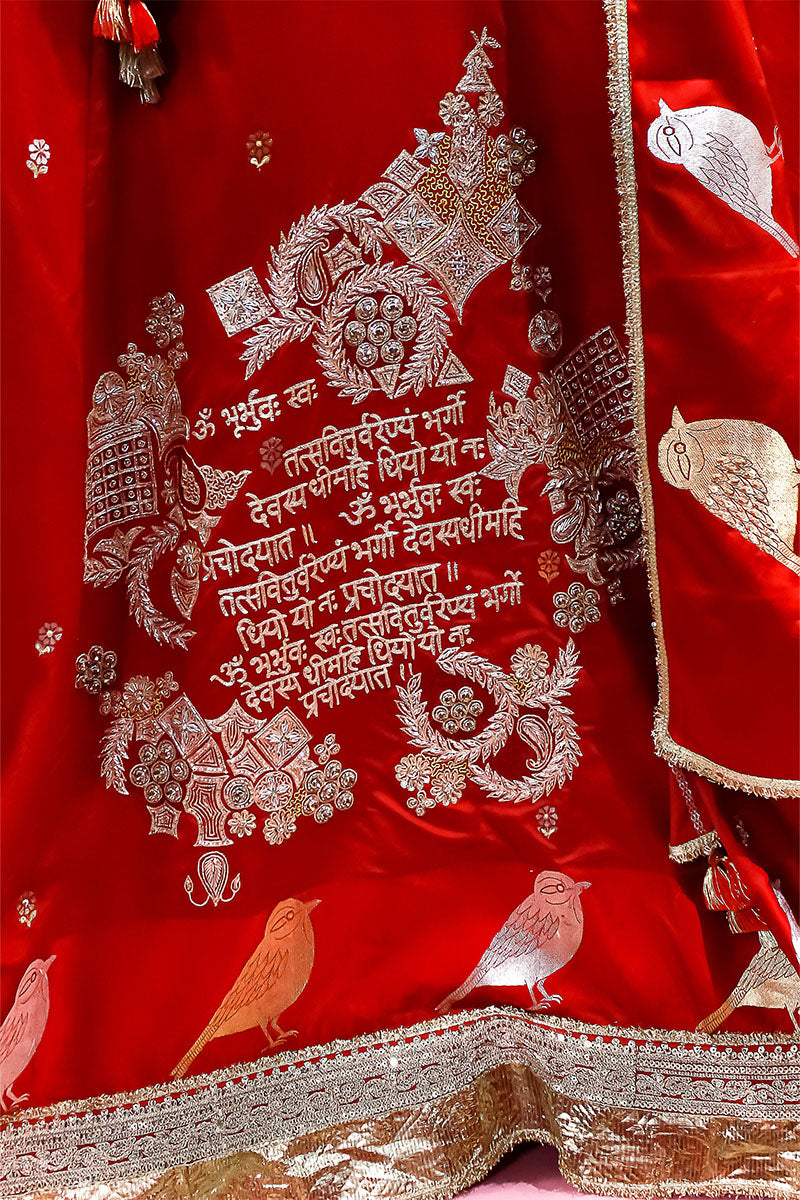 ॐ भूर्भुवः स्वः
तत्सवितुर्वरेण्यं भर्गो
देवस्यधीमहि धियो यो नः
प्रचोदयात॥ ॐ भूर्भुवः स्वः
तत्सवितुर्वरेण्यं भर्गो देवस्यधीमहि
धियो यो नः प्रचोदयात॥
ॐ भूर्भुवः स्वःतत्सवितुर्वरेण्यं भर्गो
देवस्यधीमहि धियो यो नः
प्रचोदयात॥